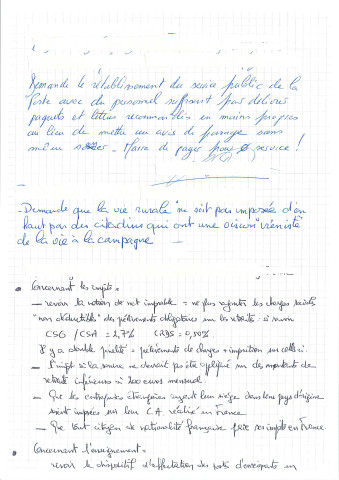 Demande le rétablissement du service public de la
Poste avec du personnel suffisant pour délivrer
paquets et lettres recommandés en mains propres
au lieu de mettre un avis de passage sans
même sonner - Marre de payer pour 0 service !
- Demande que la vie rurale ne soit pas imposée d'en
haut par des citadins qui ont une vision
de la vie à la campagne -
• Concernant les impôts =
- revoir la notion de net imposable = ne plus rajouter les charges sociales
"non déductibles" des prélèvements obligatoires sur les retraites
CSG / CSA = 2,7% CRDS = 0,50%
Il y a double = prélèvements de charges + imposition sur celles ci.
- L'impôt à la source ne devrait pas être appliqué sur des montants de
retraite inférieurs à euros mensuel.
- Que les entreprises étrangères ayant leur siège dans leur pays d'origine
soient imposées sur leur C.A. réalisé en France
- Que tout citoyen de nationalité française paie ses impôts en France
• Concernant l'enseignement =
revoir le dispositif d'affectation des posts d'enseignants en